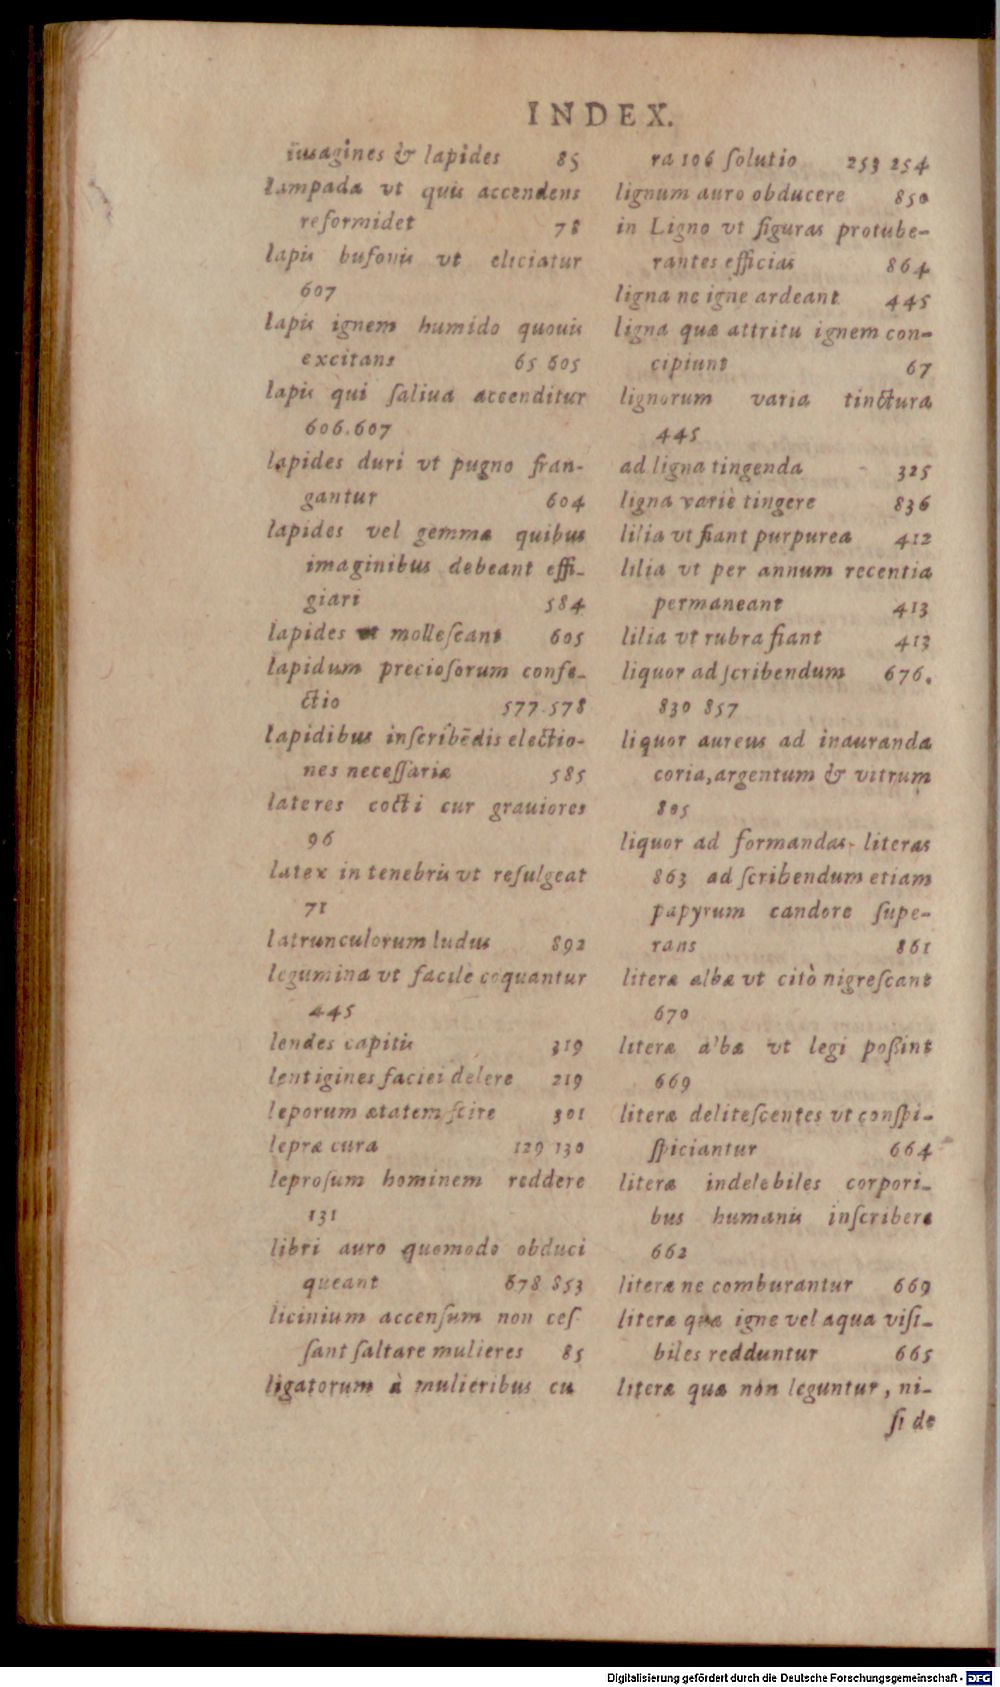 INDEX.
imagines & lapides 85
lampada vt quis accendens
reformidet 78
lapis bufonis vt eliciatur
607
lapis ignem humido quouis
excitans 65 605
lapis qui ſaliua accenditur
606.607
lapides duri vt pugno fran-
gantur 604
lapides vel gemmæ quibus
imaginibus debeant effi-
giari 584
lapides vt molleſcant 605
lapidum precioſorum confe-
ctio 577 578
lapidibus inſcribēdis electio-
nes neceſſariæ 585
lateres cocti cur grauiores
96
latex in tenebris vt reſulgeat
71
latrunculorum ludus 892
legumina vt facile coquantur
445
lendes capitis 319
lentigines faciei delere 219
leporum ætatem ſcire 301
lepræ cura 129 130
leproſum hominem reddere
131
libri auro quomodo obduci
queant 678 853
licinium accenſum non ceſ-
ſant ſaltare mulieres 85
ligatorum à mulieribus cu
ra 106 ſolutio 253 254
lignum auro obducere 850
in Ligno vt figuras protube-
rantes efficias 864
ligna ne igne ardeant 445
ligna quæ attritu ignem con-
cipiunt 67
lignorum varia tinctura
445
ad ligna tingenda 325
ligna variè tingere 836
lilia vt fiant purpurea 412
lilia vt per annum recentia
permaneant 413
lilia vt rubra fiant 413
liquor ad ſcribendum 676.
830 857
liquor aureus ad inauranda
coria, argentum & vitrum
805
liquor ad formandas literas
863 ad ſcribendum etiam
papyrum candore ſupe-
rans 861
literæ albæ vt citò nigreſcant
670
literæ albæ vt legi poßint
669
literæ deliteſcentes vt conſpi-
ſpiciantur 664
literæ indelebiles corpori-
bus humanis inſcribere
662
literæ ne comburantur 669
literæ quæ igne vel aqua viſi-
biles redduntur 665
literæ quæ non leguntur, ni-
ſi de
Digitalisierung gefördert durch die Deutsche Forschungsgemeinschaft - DFG